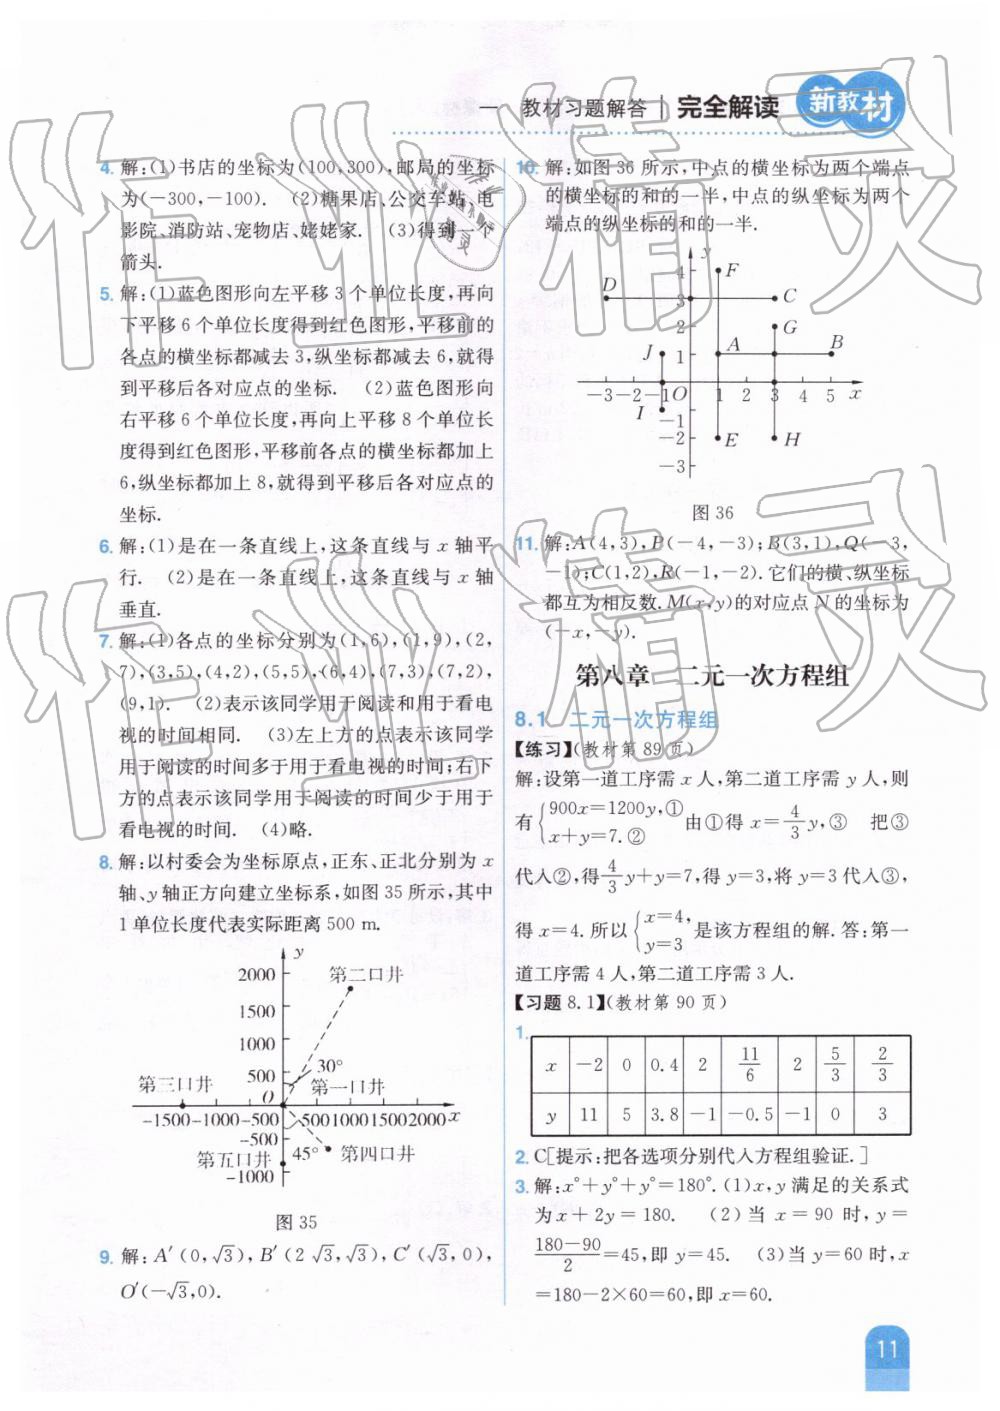 一 教材习题解答 | 完全解读 新教材
4. 解:(1)书店的坐标为(100,300),邮局的坐标
为(-300,-100). (2)糖果店、公交车站、电
影院、消防站、宠物店、姥姥家. (3)得到一个
箭头.
5. 解:(1)蓝色图形向左平移3个单位长度,再向
下平移6个单位长度得到红色图形,平移前的
各点的横坐标都减去3,纵坐标都减去6,就得
到平移后各对应点的坐标. (2)蓝色图形向
右平移6个单位长度,再向上平移8个单位长
度得到红色图形,平移前各点的横坐标都加上
6,纵坐标都加上8,就得到平移后各对应点的
坐标.
6. 解:(1)是在一条直线上,这条直线与x轴平
行. (2)是在一条直线上,这条直线与x轴
垂直.
7. 解:(1)各点的坐标分别为(1,6),(1,9),(2,
7),(3,5),(4,2),(5,5),(6,4),(7,3),(7,2),
(9,1). (2)表示该同学用于阅读和用于看电
视的时间相同. (3)左上方的点表示该同学
用于阅读的时间多于用于看电视的时间;右下
方的点表示该同学用于阅读的时间少于用于
看电视的时间. (4)略.
8. 解:以村委会为坐标原点,正东、正北分别为x
轴、y轴正方向建立坐标系,如图35所示,其中
1单位长度代表实际距离500 m.
y
2000 第二口井
1500
1000
500 30°
第三口井 O 第一口井
-1500 -1000 -500 500 1000 1500 2000 x
-500
第五口井 45° 第四口井
-1000
图35
9. 解:A′(0,√3),B′(2√3,√3),C′(√3,0),
O′(-√3,0).
10. 解:如图36所示,中点的横坐标为两个端点
的横坐标的和的一半,中点的纵坐标为两个
端点的纵坐标的和的一半.
y
4 F
D 3 C
2 G
J 1 A B
-3 -2 -1 O 1 2 3 4 5 x
I -1
-2 E H
-3
图36
11. 解:A(4,3),P(-4,-3);B(3,1),Q(-3,
-1);C(1,2),R(-1,-2).它们的横、纵坐标
都互为相反数.M(x,y)的对应点N的坐标为
(-x,-y).
第八章 二元一次方程组
8.1 二元一次方程组
【练习】(教材第89页)
解:设第一道工序需x人,第二道工序需y人,则
有{900x=1200y,① x+y=7.② 由①得x=4/3y,③ 把③
代入②,得4/3y+y=7,得y=3,将y=3代入③,
得x=4.所以{x=4, y=3 是该方程组的解.答:第一
道工序需4人,第二道工序需3人.
【习题8.1】(教材第90页)
1.
x -2 0 0.4 2 11/6 2 5/3 2/3
y 11 5 3.8 -1 -0.5 -1 0 3
2. C[提示:把各选项分别代入方程组验证.]
3. 解:x°+y°+y°=180°.(1)x,y满足的关系式
为x+2y=180. (2)当x=90时,y=
180-90/2=45,即y=45. (3)当y=60时,x
=180-2×60=60,即x=60.
11
作业精灵
作业精灵